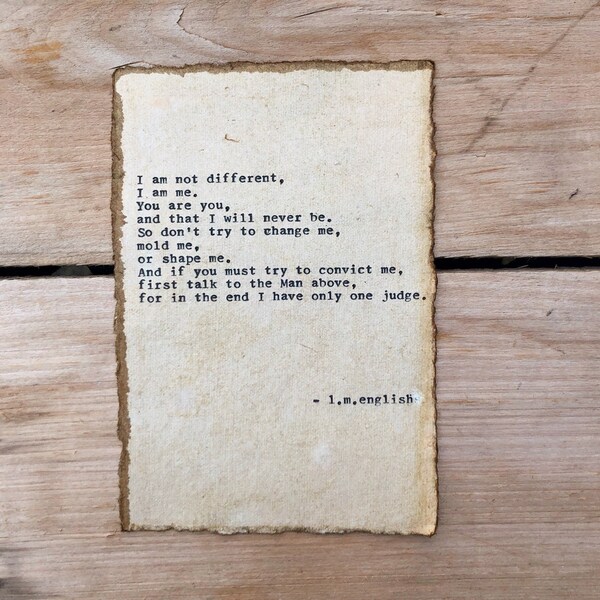 I am not different,
I am me.
You are you,
and that I will never be.
So don't try to change me,
mold me,
or shape me.
And if you must try to convict me,
first talk to the Man above,
for in the end I have only one judge.
- l.m.english